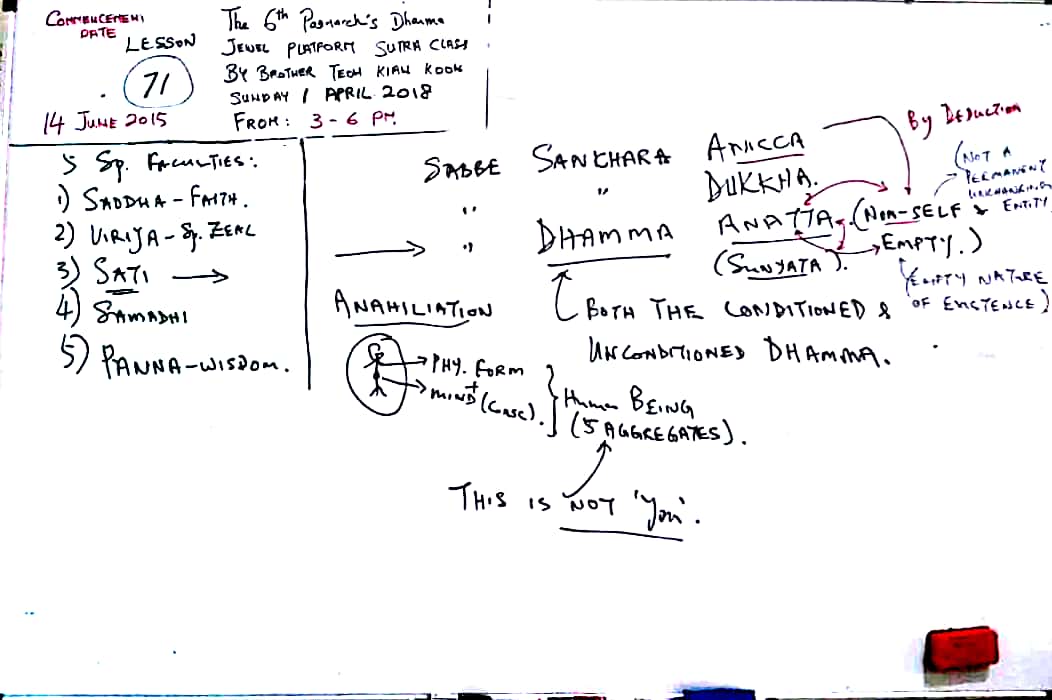 COMMENCEMENT
DATE
LESSON
71
14 JUNE 2015
The 6th Patriarch's Dharma
JEWEL PLATFORM SUTRA CLASS
BY BROTHER TEOH KIAN KOON
SUNDAY 1 APRIL 2018
FROM: 3 - 6 PM
5 Sp. FACULTIES:
1) SADDHA - FAITH.
2) VIRIJA - Sp. ZEAL
3) SATI →
4) SAMADHI
5) PANNA - WISDOM.
SABBE SANKHARA ANICCA
" " DUKKHA.
→ " DHAMMA ANATTA. (NON-SELF &
EMPTY.)
(SUNYATA).
By DEDUCTION
(NOT A
PERMANENT
UNCHANGING
ENTITY
(EMPTY NATURE
OF EXISTENCE)
BOTH THE CONDITIONED &
UNCONDITIONED DHAMMA.
ANAHILIATION
→ PHY. FORM
→ MIND +
} Human BEING
(5 AGGREGATES).
THIS IS NOT 'You'.